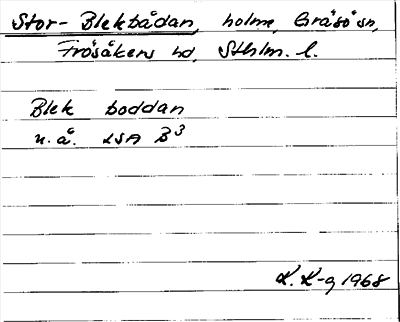 Stor-Blekbådan, holme, Gräsö sn,
Frösåkers hd, Sthlm. l.
Blek boddan
u.å. LSA B3
K. K-g 1968